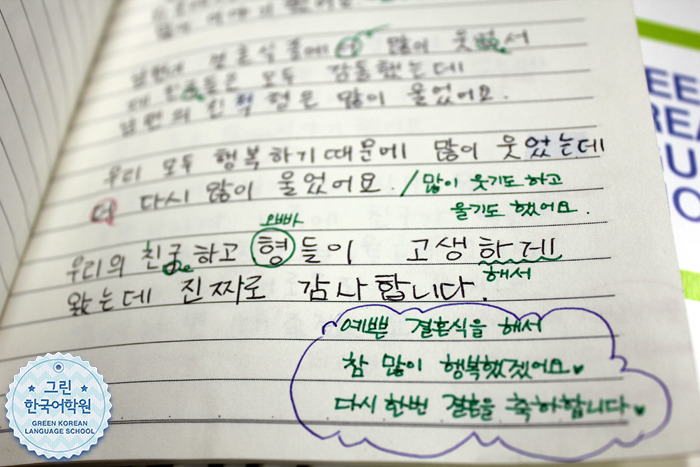 결혼식 중에 더 많이
친구들은 모두 감동했는데
남편의 친척 형은 많이 울었어요.
우리 모두 행복하기 때문에 많이 웃었는데
더 다시 많이 울었어요. / 많이 웃기도 하고
울기도 했어요.
오빠
우리의 친구하고 형들이 고생하데
해서
왔는데 진짜로 감사합니다.
예쁜 결혼식을 해서
참 많이 행복했겠어요♥
다시 한번 결혼을 축하합니다♥
그린
한국어학원
GREEN KOREAN
LANGUAGE SCHOOL